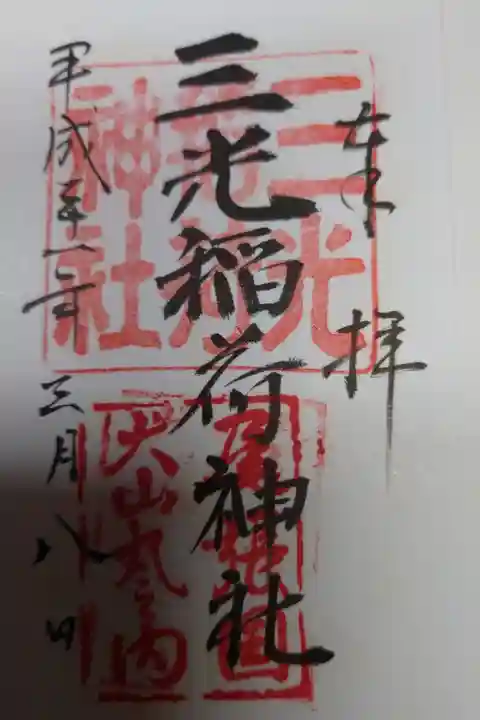 奉拝
三光稲荷神社
平成三十一年三月八日
三光
稲荷
神社
尾張国
犬山丸之内